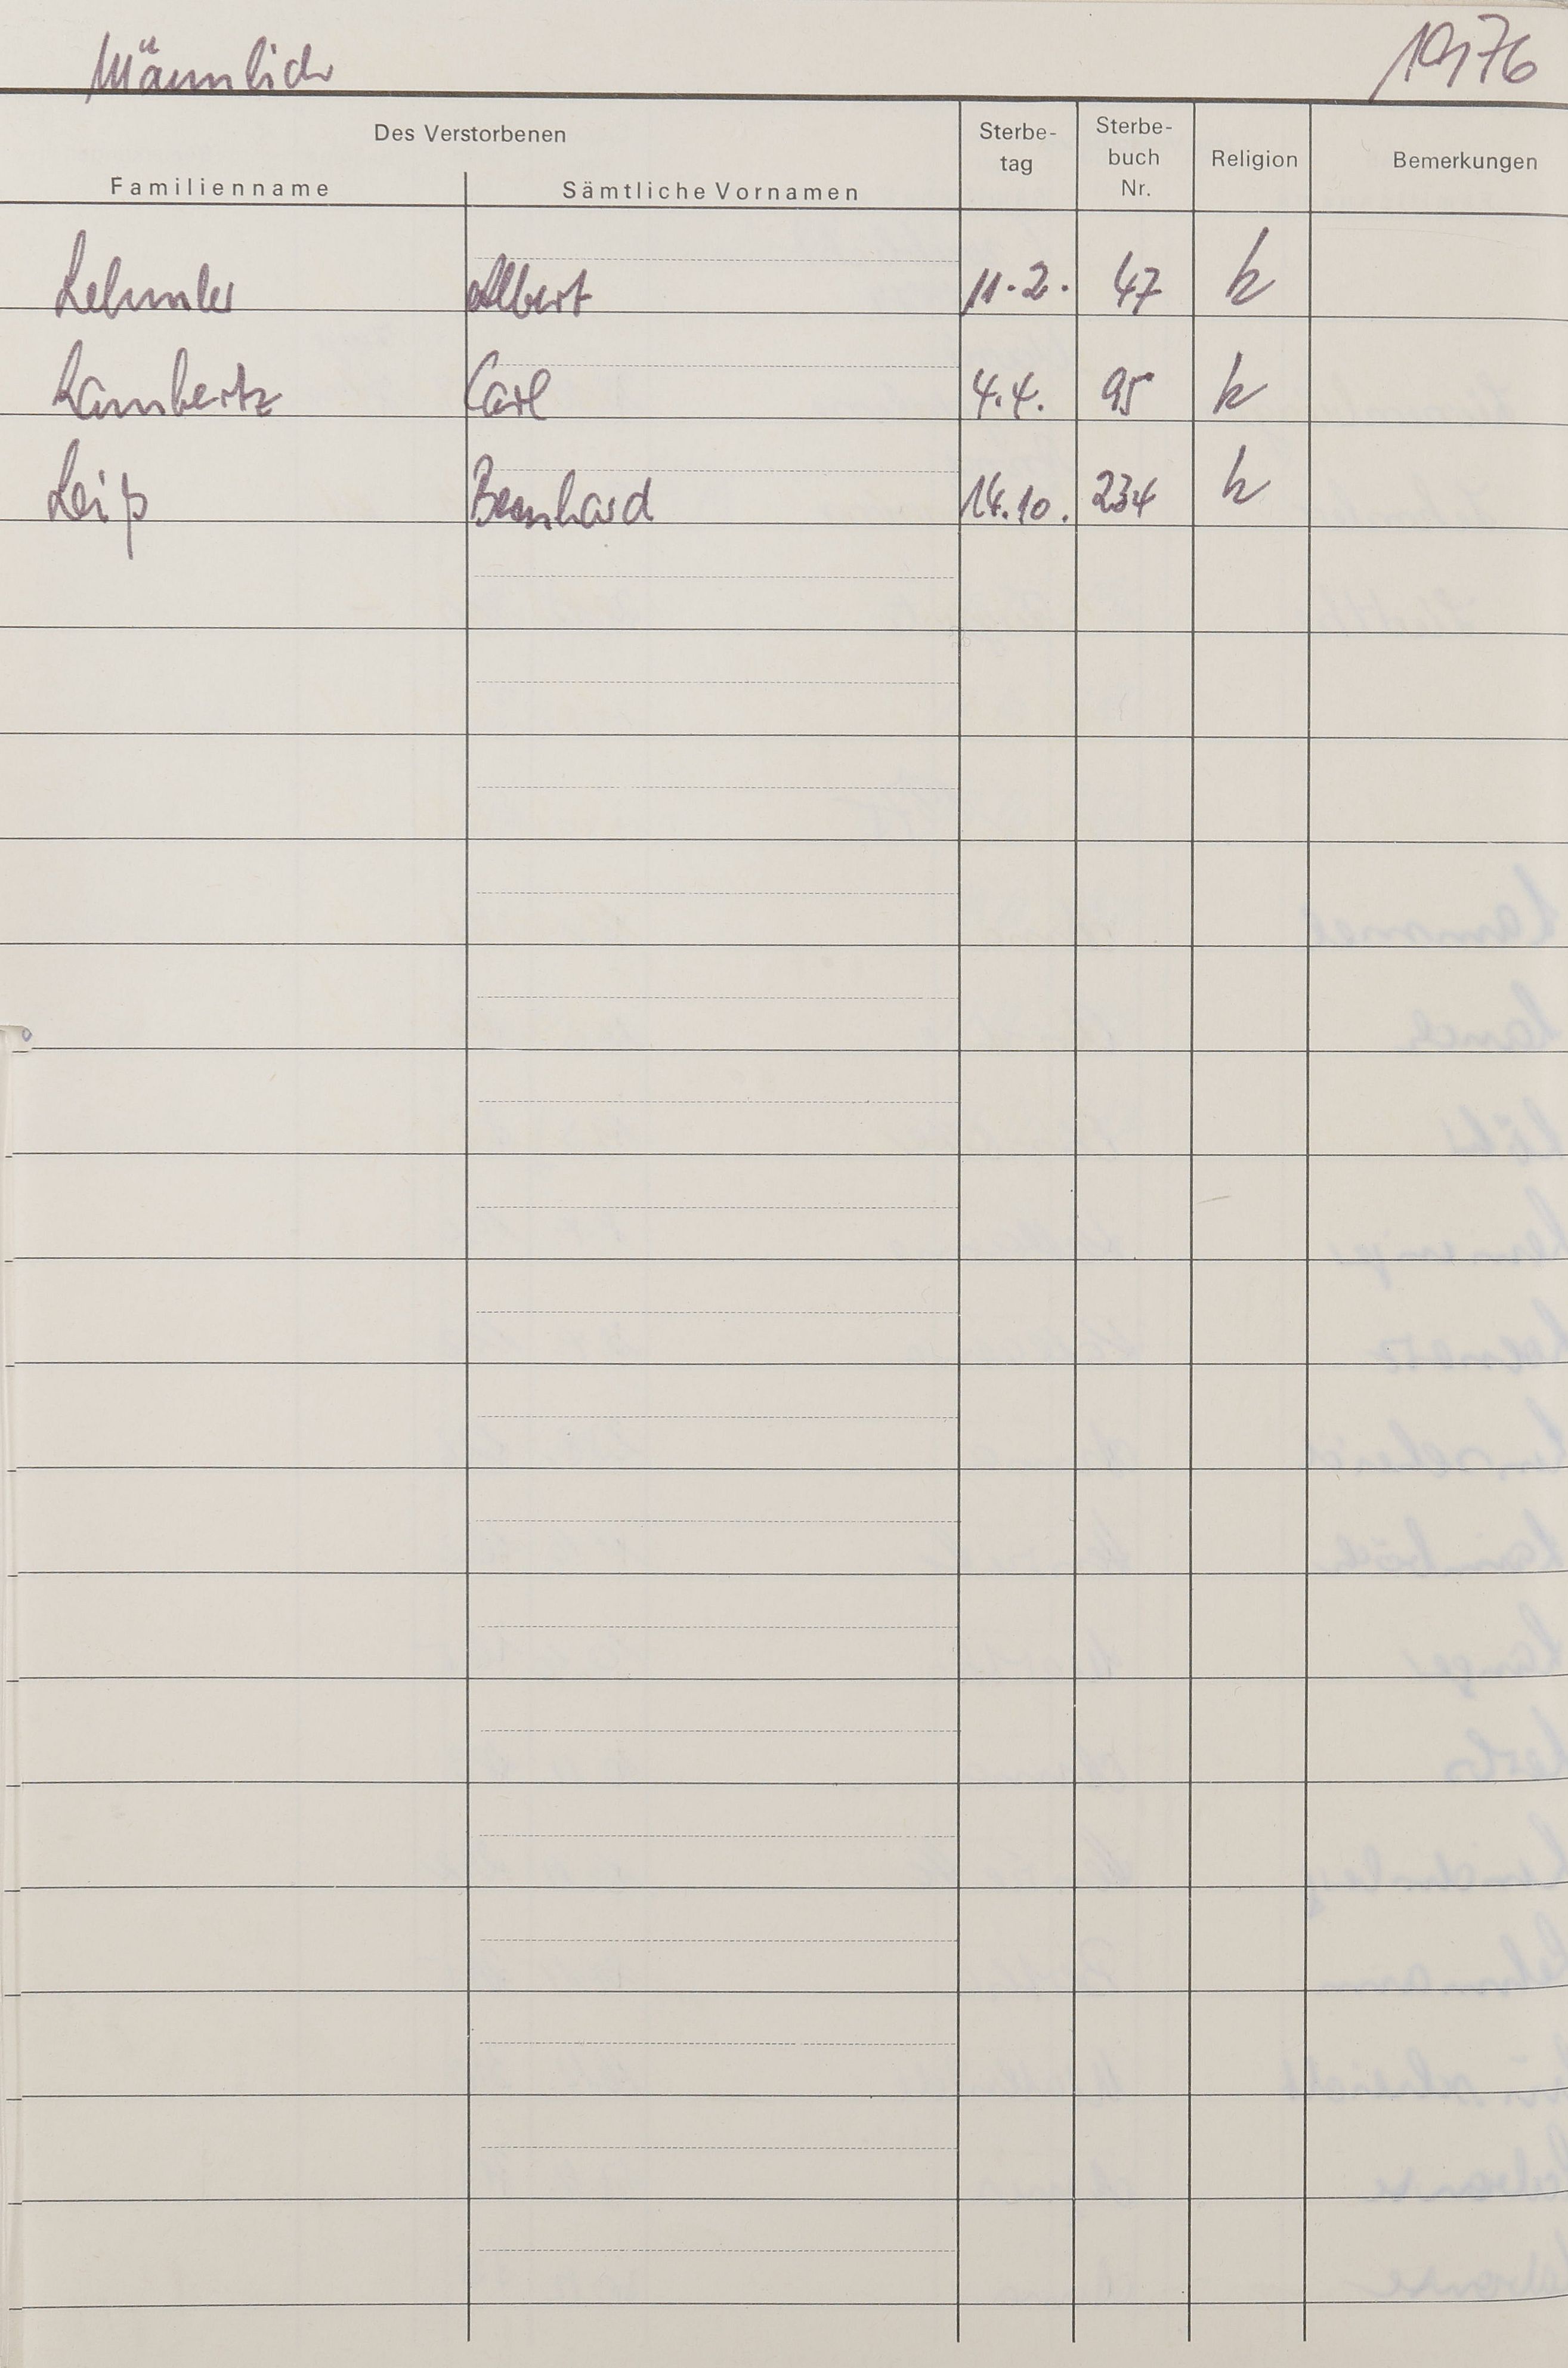 Männlich 1976
Des Verstorbenen
Familienname Sämtliche Vornamen Sterbe-tag Sterbe-buch Nr. Religion Bemerkungen
Lehmler Albert 11.2. 47 k
Lambertz Carl 4.4. 95 k
Leiß Bernhard 14.10. 234 k